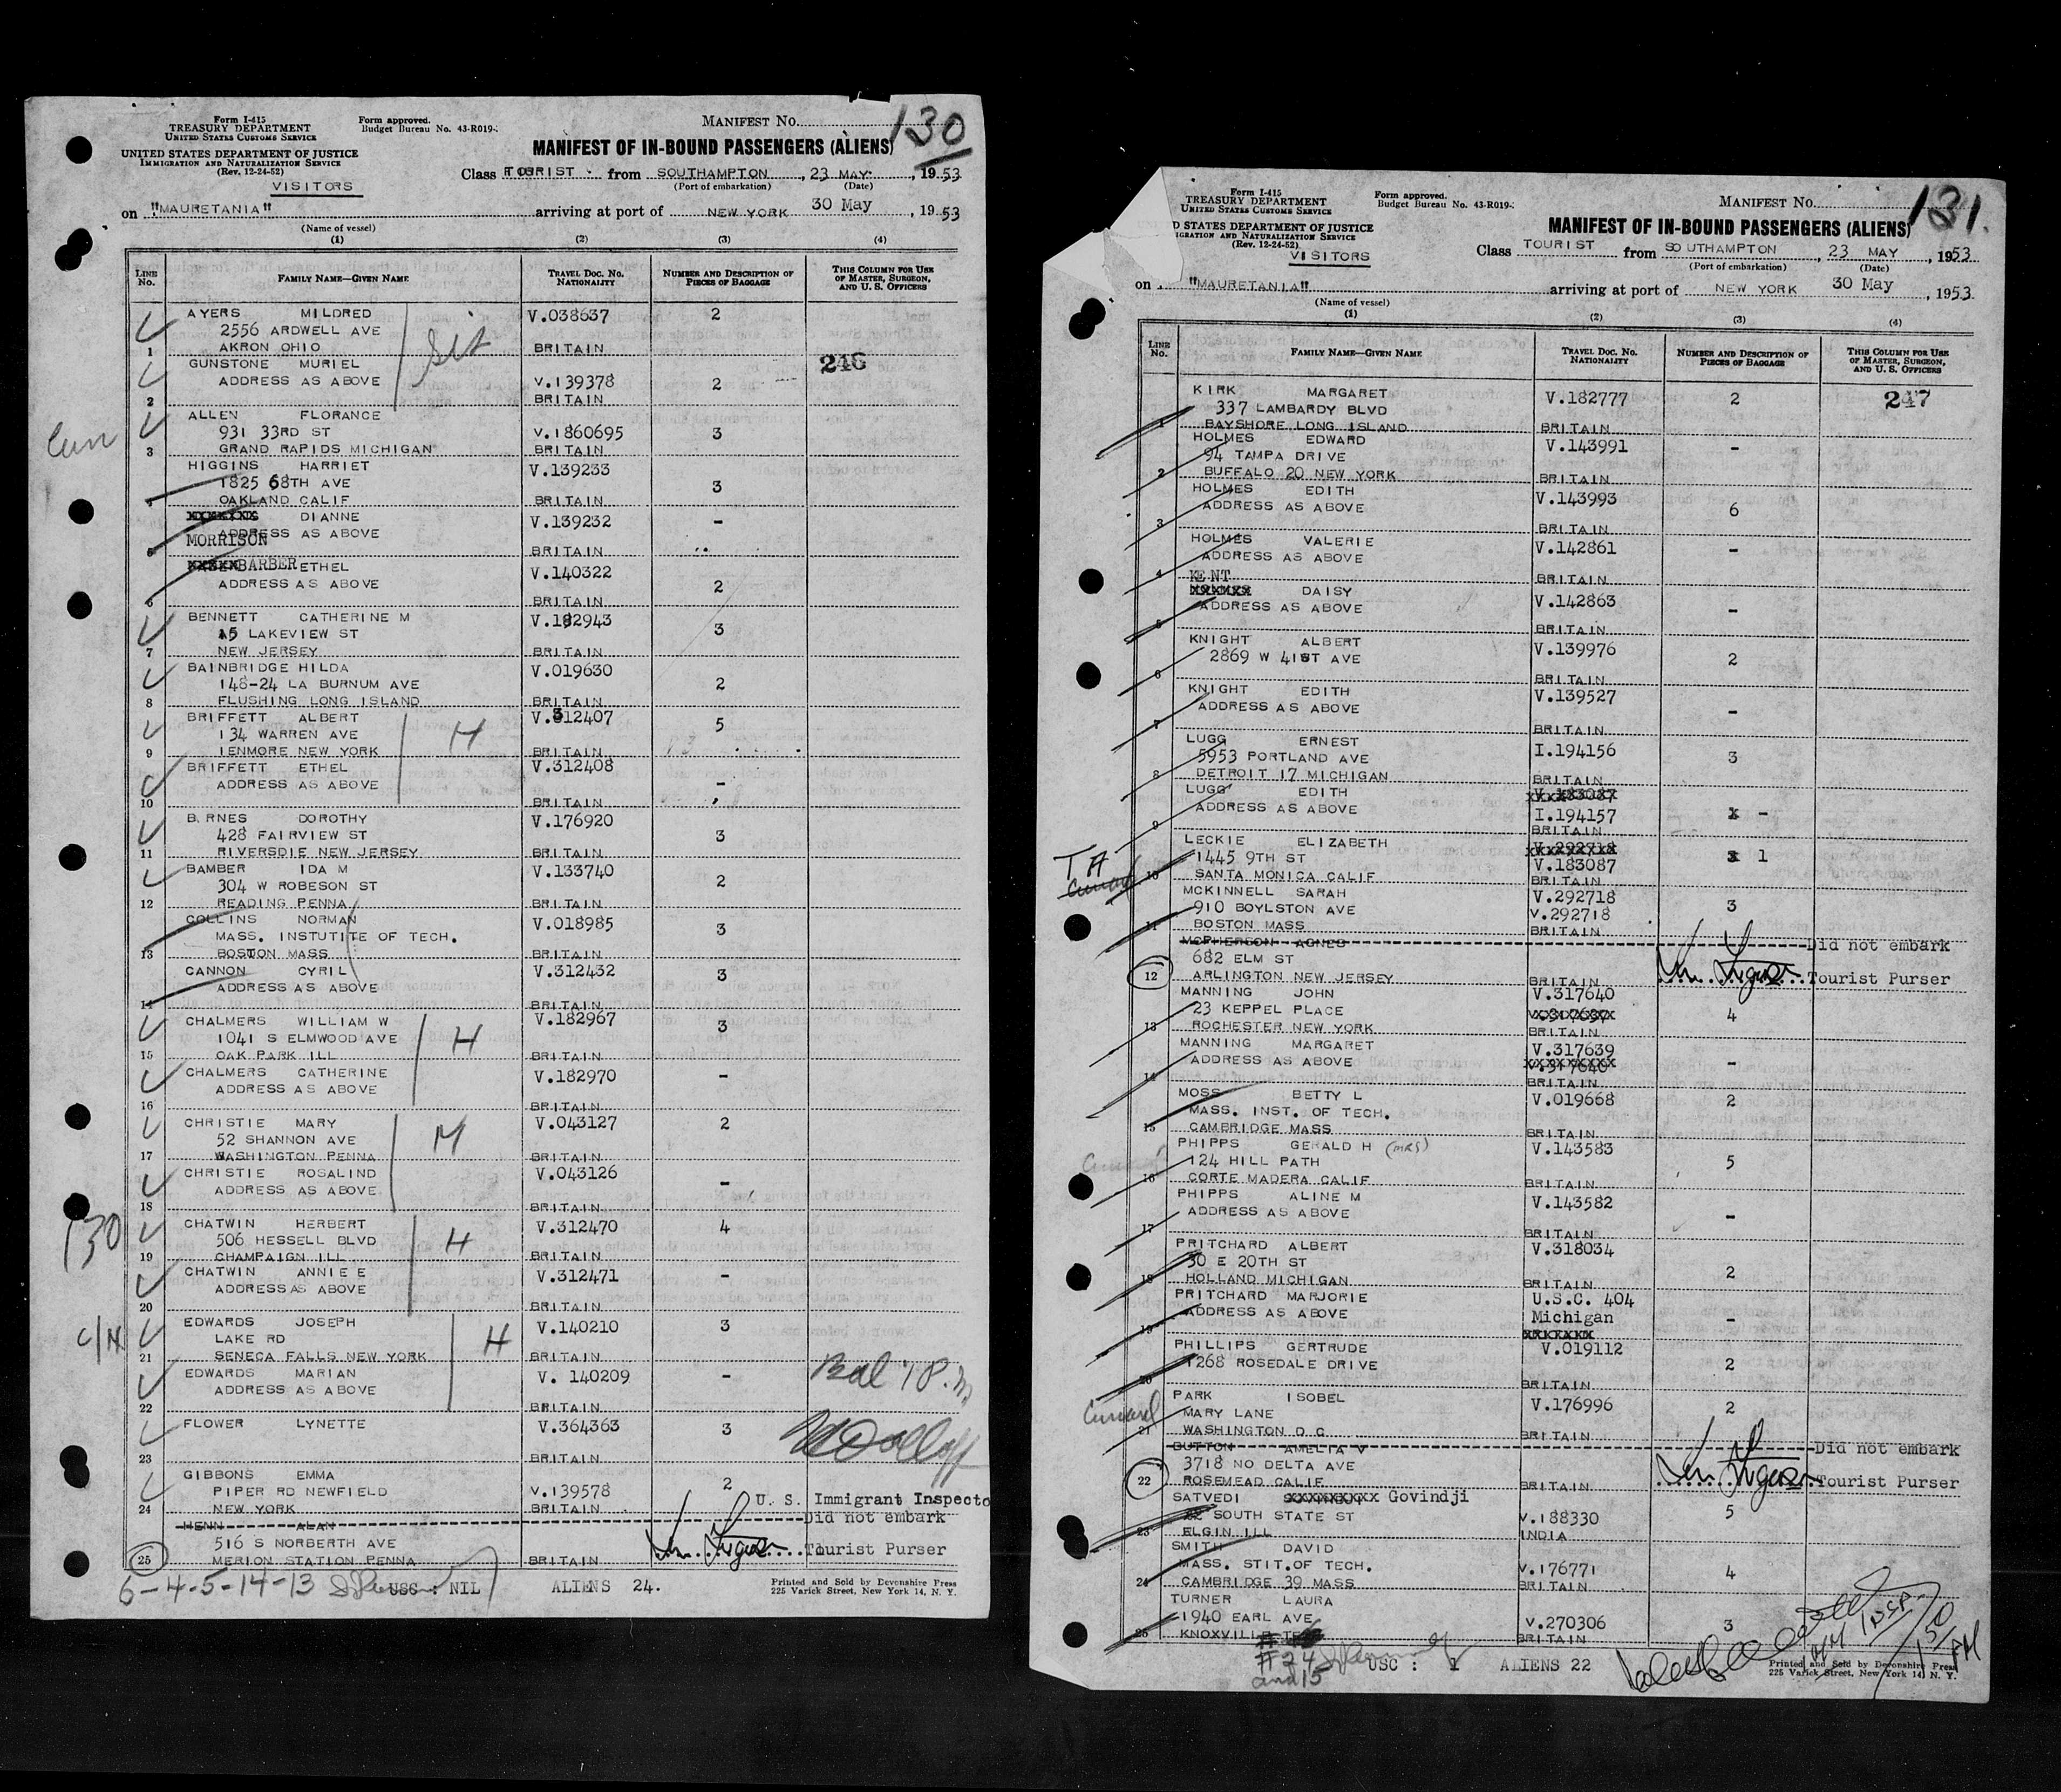 Form I-415
TREASURY DEPARTMENT
UNITED STATES CUSTOMS SERVICE
Form approved.
Budget Bureau No. 43-R019-
MANIFEST No. 130
UNITED STATES DEPARTMENT OF JUSTICE
IMMIGRATION AND NATURALIZATION SERVICE
(Rev. 12-24-52)
VISITORS
MANIFEST OF IN-BOUND PASSENGERS (ALIENS)
Class TOURIST from SOUTHAMPTON, 23 MAY, 1953
(Port of embarkation) (Date)
on "MAURETANIA" arriving at port of NEW YORK 30 May, 1953
(Name of vessel)
(1) (2) (3) (4)
LINE No. FAMILY NAME—GIVEN NAME TRAVEL DOC. NO. NATIONALITY NUMBER AND DESCRIPTION OF PIECES OF BAGGAGE THIS COLUMN FOR USE OF MASTER, SURGEON, AND U. S. OFFICERS
AYERS MILDRED V.038637 2
2556 ARDWELL AVE
1 AKRON OHIO BRITAIN
GUNSTONE MURIEL 246
ADDRESS AS ABOVE V.139378 2
2 BRITAIN
ALLEN FLORANCE
931 33RD ST V.1860695 3
3 GRAND RAPIDS MICHIGAN BRITAIN
HIGGINS HARRIET V.139233
1825 68TH AVE 3
OAKLAND CALIF BRITAIN
XXXXXXX DIANNE V.139232 -
ADDRESS AS ABOVE
MORRISON BRITAIN
BARBER ETHEL V.140322
ADDRESS AS ABOVE 2
6 BRITAIN
BENNETT CATHERINE M V.182943
15 LAKEVIEW ST 3
7 NEW JERSEY BRITAIN
BAINBRIDGE HILDA V.019630
148-24 LA BURNUM AVE 2
8 FLUSHING LONG ISLAND BRITAIN
BRIFFETT ALBERT V.312407 5
134 WARREN AVE H
9 IENMORE NEW YORK BRITAIN
BRIFFETT ETHEL V.312408
ADDRESS AS ABOVE -
10 BRITAIN
B.RNES DOROTHY V.176920
428 FAIRVIEW ST 3
11 RIVERSDIE NEW JERSEY BRITAIN
BAMBER IDA M V.133740
304 W ROBESON ST 2
12 READING PENNA BRITAIN
COLLINS NORMAN V.018985 3
MASS. INSTUTITE OF TECH.
13 BOSTON MASS BRITAIN
CANNON CYRIL V.312432 3
ADDRESS AS ABOVE
14 BRITAIN
CHALMERS WILLIAM W V.182967 3
1041 S ELMWOOD AVE H
15 OAK PARK ILL BRITAIN
CHALMERS CATHERINE V.182970 -
ADDRESS AS ABOVE
16 BRITAIN
CHRISTIE MARY V.043127 2
52 SHANNON AVE M
17 WASHINGTON PENNA BRITAIN
CHRISTIE ROSALIND V.043126
ADDRESS AS ABOVE -
18 BRITAIN
130 CHATWIN HERBERT V.312470 4
506 HESSELL BLVD H
19 CHAMPAIGN ILL BRITAIN
CHATWIN ANNIE E V.312471 -
ADDRESS AS ABOVE
20 BRITAIN
EDWARDS JOSEPH V.140210 3
LAKE RD H
21 SENECA FALLS NEW YORK BRITAIN
EDWARDS MARIAN V. 140209 -
ADDRESS AS ABOVE
22 BRITAIN
FLOWER LYNETTE V.364363 3
23 BRITAIN
GIBBONS EMMA
PIPER RD NEWFIELD V.139578 2
24 NEW YORK BRITAIN
U. S. Immigrant Inspecto
HENN ALAN Did not embark
516 S NORBERTH AVE
25 MERION STATION PENNA BRITAIN Tourist Purser
6-4-5-14-13 USC : NIL ALIENS 24.
Printed and Sold by Devonshire Press
225 Varick Street, New York 14, N. Y.
Form I-415
TREASURY DEPARTMENT
UNITED STATES CUSTOMS SERVICE
Form approved.
Budget Bureau No. 43-R019-
MANIFEST No. 131.
D STATES DEPARTMENT OF JUSTICE
IGRATION AND NATURALIZATION SERVICE
(Rev. 12-24-52)
VISITORS
MANIFEST OF IN-BOUND PASSENGERS (ALIENS)
Class TOURIST from SOUTHAMPTON, 23 MAY, 1953
(Port of embarkation) (Date)
on "MAURETANIA" arriving at port of NEW YORK 30 May, 1953.
(Name of vessel)
(1) (2) (3) (4)
LINE No. FAMILY NAME—GIVEN NAME TRAVEL DOC. NO. NATIONALITY NUMBER AND DESCRIPTION OF PIECES OF BAGGAGE THIS COLUMN FOR USE OF MASTER, SURGEON, AND U. S. OFFICERS
KIRK MARGARET V.182777 2 247
337 LAMBARDY BLVD
1 BAYSHORE LONG ISLAND BRITAIN
HOLMES EDWARD V.143991 -
94 TAMPA DRIVE
2 BUFFALO 20 NEW YORK BRITAIN
HOLMES EDITH V.143993
ADDRESS AS ABOVE 6
3 BRITAIN
HOLMES VALERIE V.142861 -
ADDRESS AS ABOVE
4 BRITAIN
KENT
XXXXXX DAISY V.142863 -
ADDRESS AS ABOVE
5 BRITAIN
KNIGHT ALBERT V.139976
2869 W 41ST AVE 2
6 BRITAIN
KNIGHT EDITH V.139527
ADDRESS AS ABOVE -
7 BRITAIN
LUGG ERNEST I.194156
5953 PORTLAND AVE 3
8 DETROIT 17 MICHIGAN BRITAIN
LUGG EDITH V.183087
ADDRESS AS ABOVE I.194157 -
9 BRITAIN
LECKIE ELIZABETH V.292718
TA 1445 9TH ST V.183087 1
10 SANTA MONICA CALIF BRITAIN
MCKINNELL SARAH V.292718
910 BOYLSTON AVE V.292718 3
11 BOSTON MASS BRITAIN
MCPHERSON AGNES Did not embark
682 ELM ST
12 ARLINGTON NEW JERSEY BRITAIN Tourist Purser
MANNING JOHN V.317640
23 KEPPEL PLACE 4
13 ROCHESTER NEW YORK BRITAIN
MANNING MARGARET V.317639
ADDRESS AS ABOVE V.317640 -
14 BRITAIN
MOSS BETTY L V.019668 2
MASS. INST. OF TECH.
15 CAMBRIDGE MASS BRITAIN
PHIPPS GERALD H (MRS) V.143583
124 HILL PATH 5
16 CORTE MADERA CALIF BRITAIN
PHIPPS ALINE M V.143582
ADDRESS AS ABOVE -
17
PRITCHARD ALBERT V.318034
30 E 20TH ST 2
18 HOLLAND MICHIGAN BRITAIN
PRITCHARD MARJORIE U.S.C. 404
ADDRESS AS ABOVE Michigan -
19 XXXXXXX
PHILLIPS GERTRUDE V.019112
1268 ROSEDALE DRIVE 2
20 BRITAIN
PARK ISOBEL V.176996 2
Cunard MARY LANE
21 WASHINGTON D C BRITAIN
DUTTON AMELIA V Did not embark
3718 NO DELTA AVE
22 ROSEMEAD CALIF BRITAIN Tourist Purser
SATVEDI XXXXXXXXX Govindji 5
22 SOUTH STATE ST V.188330
23 ELGIN ILL INDIA
SMITH DAVID
MASS. STIT.OF TECH. V.176771 4
24 CAMBRIDGE 39 MASS BRITAIN
TURNER LAURA
1940 EARL AVE V.270306 3
25 KNOXVILLE BRITAIN
#24
and 15
USC : 1 ALIENS 22
Printed and Sold by Devonshire Press
225 Varick Street, New York 14, N. Y.